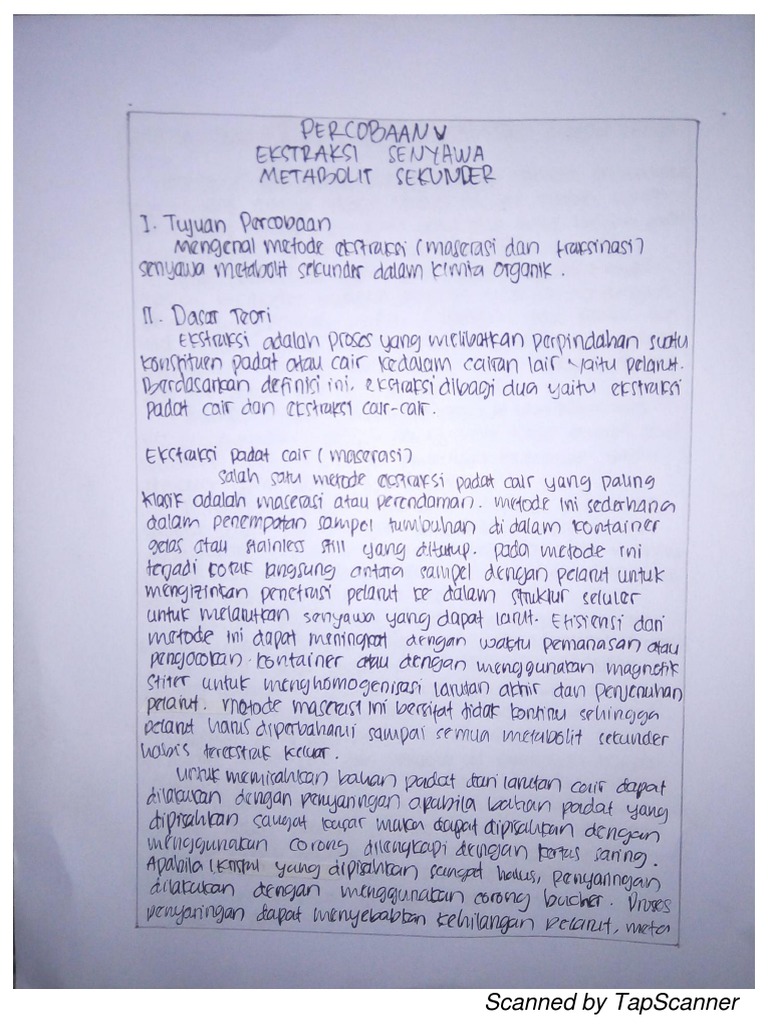 PERCOBAAN V
EKSTRAKSI SENYAWA
METABOLIT SEKUNDER
I. Tujuan Percobaan
Mengenal metode ekstraksi (maserasi dan fraksinasi)
senyawa metabolit sekunder dalam kimia organik.
II. Dasar Teori
Ekstraksi adalah proses yang melibatkan perpindahan suatu
konstituen padat atau cair kedalam cairan lair yaitu pelarut.
Berdasarkan definisi ini, ekstraksi dibagi dua yaitu ekstraksi
padat cair dan ekstraksi cair-cair.
Ekstraksi padat cair (maserasi)
Salah satu metode ekstraksi padat cair yang paling
klasik adalah maserasi atau perendaman. Metode ini sederhana
dalam penempatan sampel tumbuhan di dalam kontainer
gelas atau stainless still yang ditutup. Pada metode ini
terjadi kotak langsung antara sampel dengan pelarut untuk
mengizinkan penetrasi pelarut ke dalam struktur seluler
untuk melarutkan senyawa yang dapat larut. Efisiensi dari
metode ini dapat meningkat dengan waktu pemanasan atau
pengocokan kontainer atau dengan menggunakan magnetik
stirer untuk menghomogenisasi larutan akhir dan penjenuhan
pelarut. Metode maserasi ini bersifat tidak kontinu sehingga
pelarut harus diperbaharui sampai semua metabolit sekunder
habis terekstrak keluar.
Untuk memisahkan bahan padat dari larutan cair dapat
dilakukan dengan penyaringan apabila bahan padat yang
dipisahkan sangat kasar maka dapat dipisahkan dengan
menggunakan corong dilengkapi dengan kertas saring.
Apabila kristal yang dipisahkan sangat halus, penyaringan
dilakukan dengan menggunakan corong bucher. Proses
penyaringan dapat menyebabkan kehilangan pelarut, maka